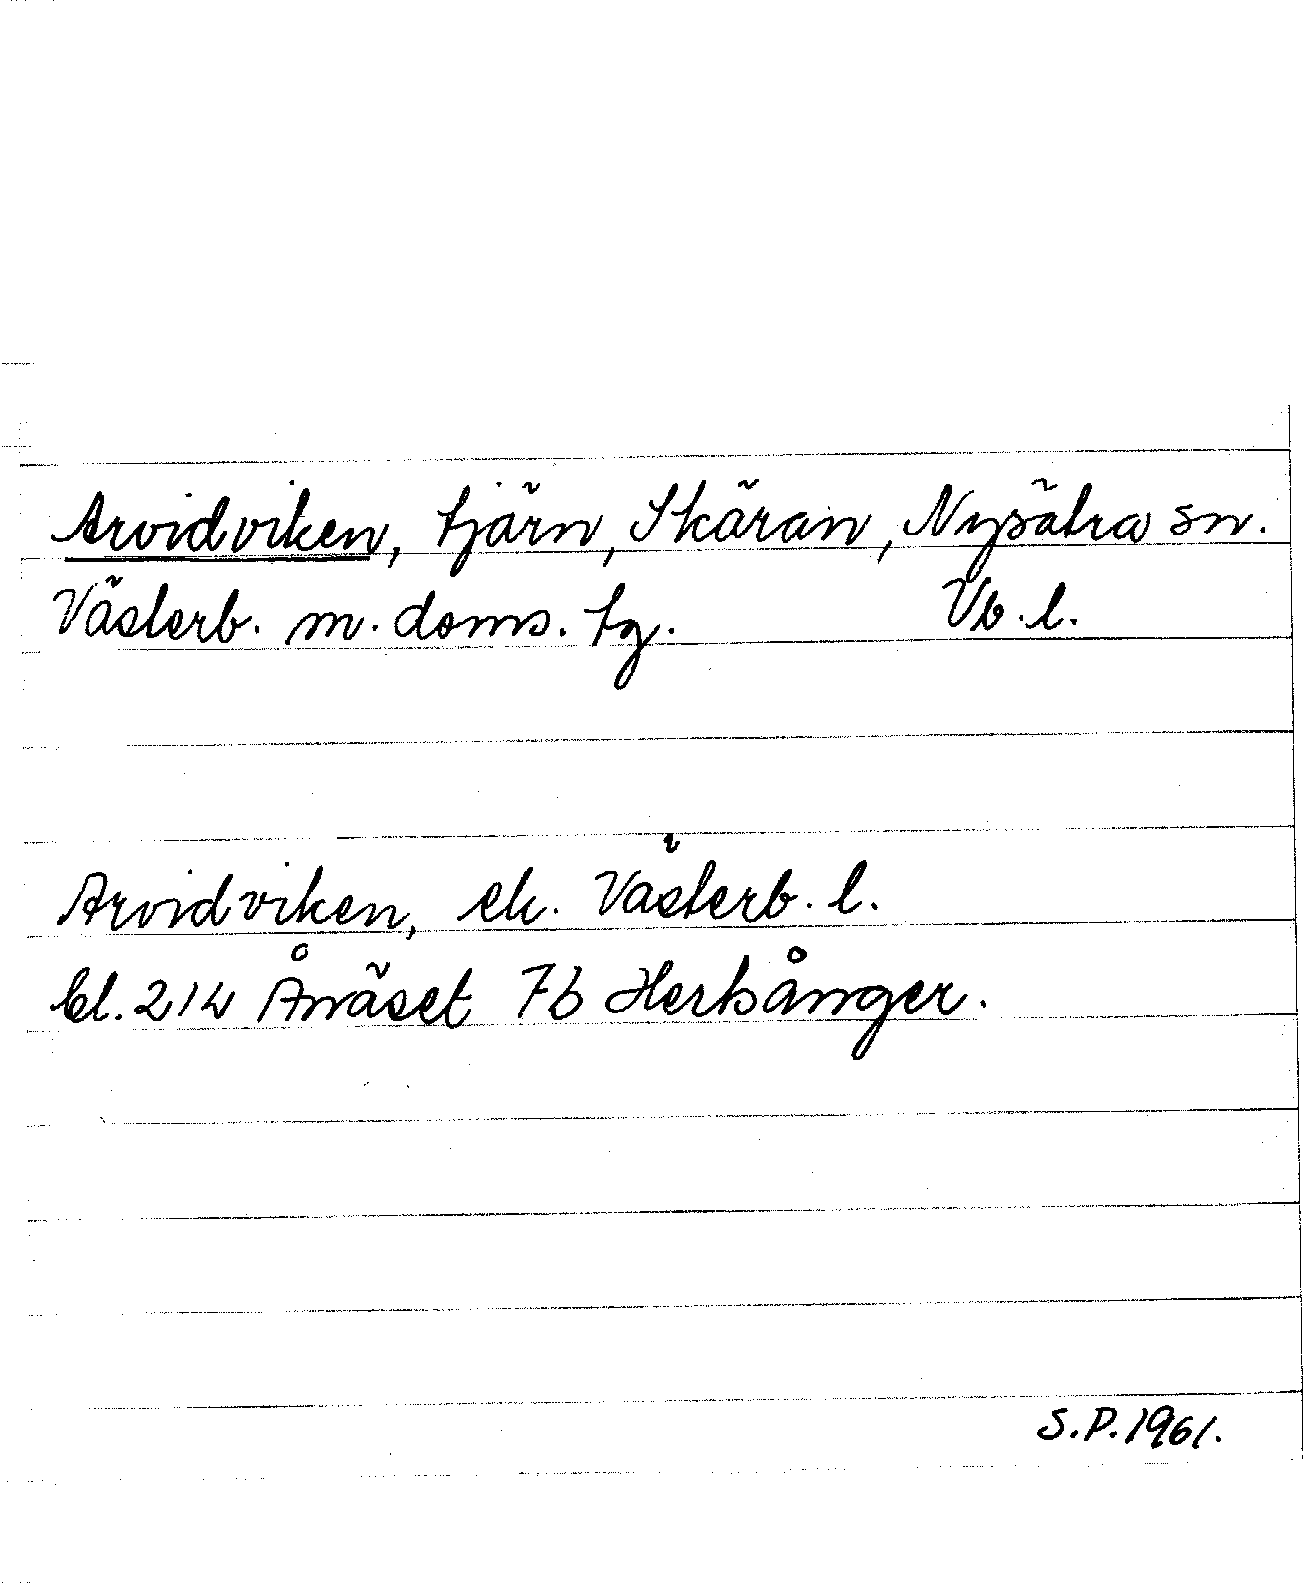 Arvidviken, tjärn, Skäran, Nysätra sn.
Västerb. m. doms. tg. Vb. l.
Arvidviken, ek. Västerb. l.
bl. 214 Ånäset 7b Herrsånger.
S.P. 1961.